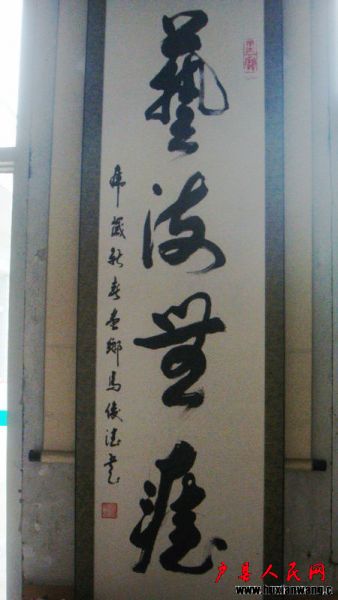 藝海無涯
虎歲新春畫鄉馬俊德書
户县人民网
www.huxianwang.c